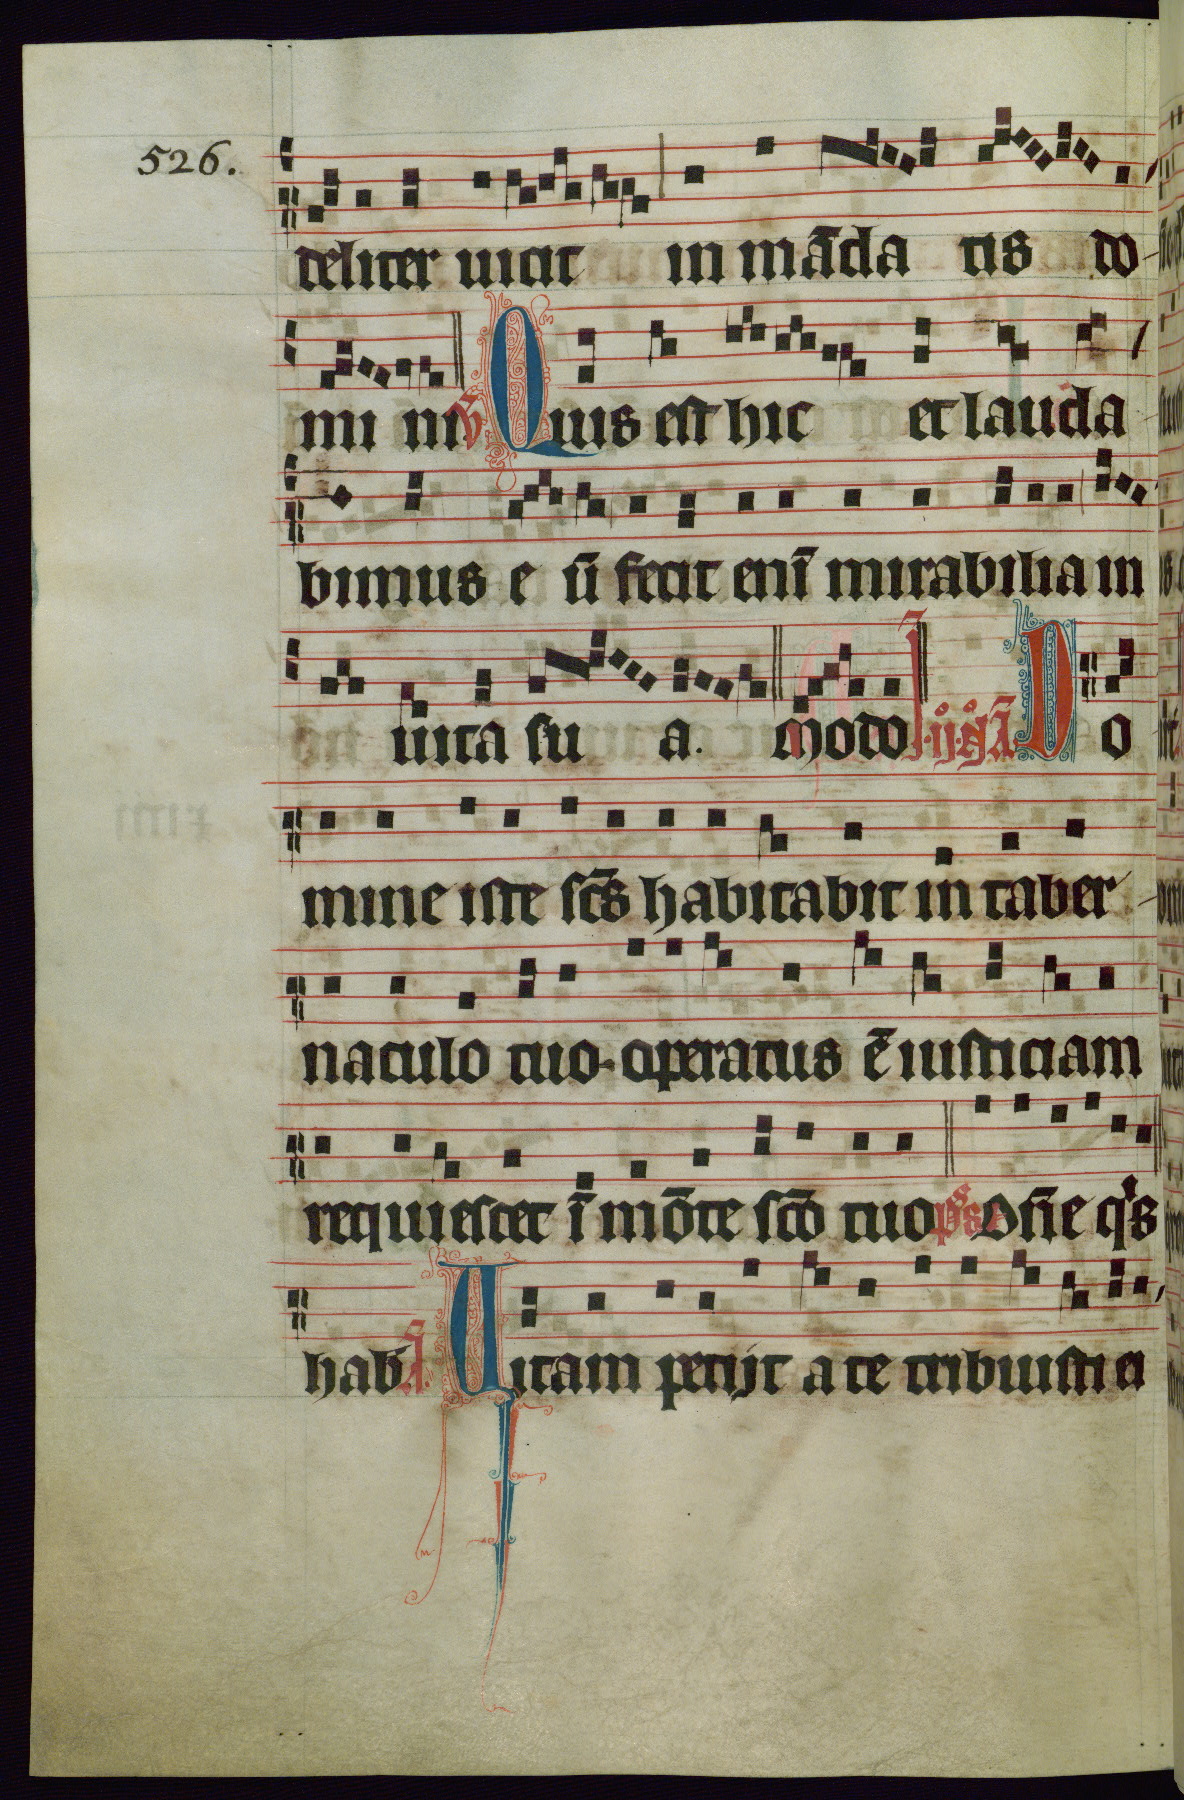 526.
deliter uicit in mād̄a tis do
mi ni. V Quis est hic et lauda
bimus e ū fecit enī mirabilia in
uita su a. modo. I. ij. ā. D o
mine iste scs̄ habitabit in taber
naculo tuo. operatus ē iusticiam
requiescet ī mōte scō tuo. ps Dn̄e qͥs
hab. A. Uitam petijt a te tribuisti ei